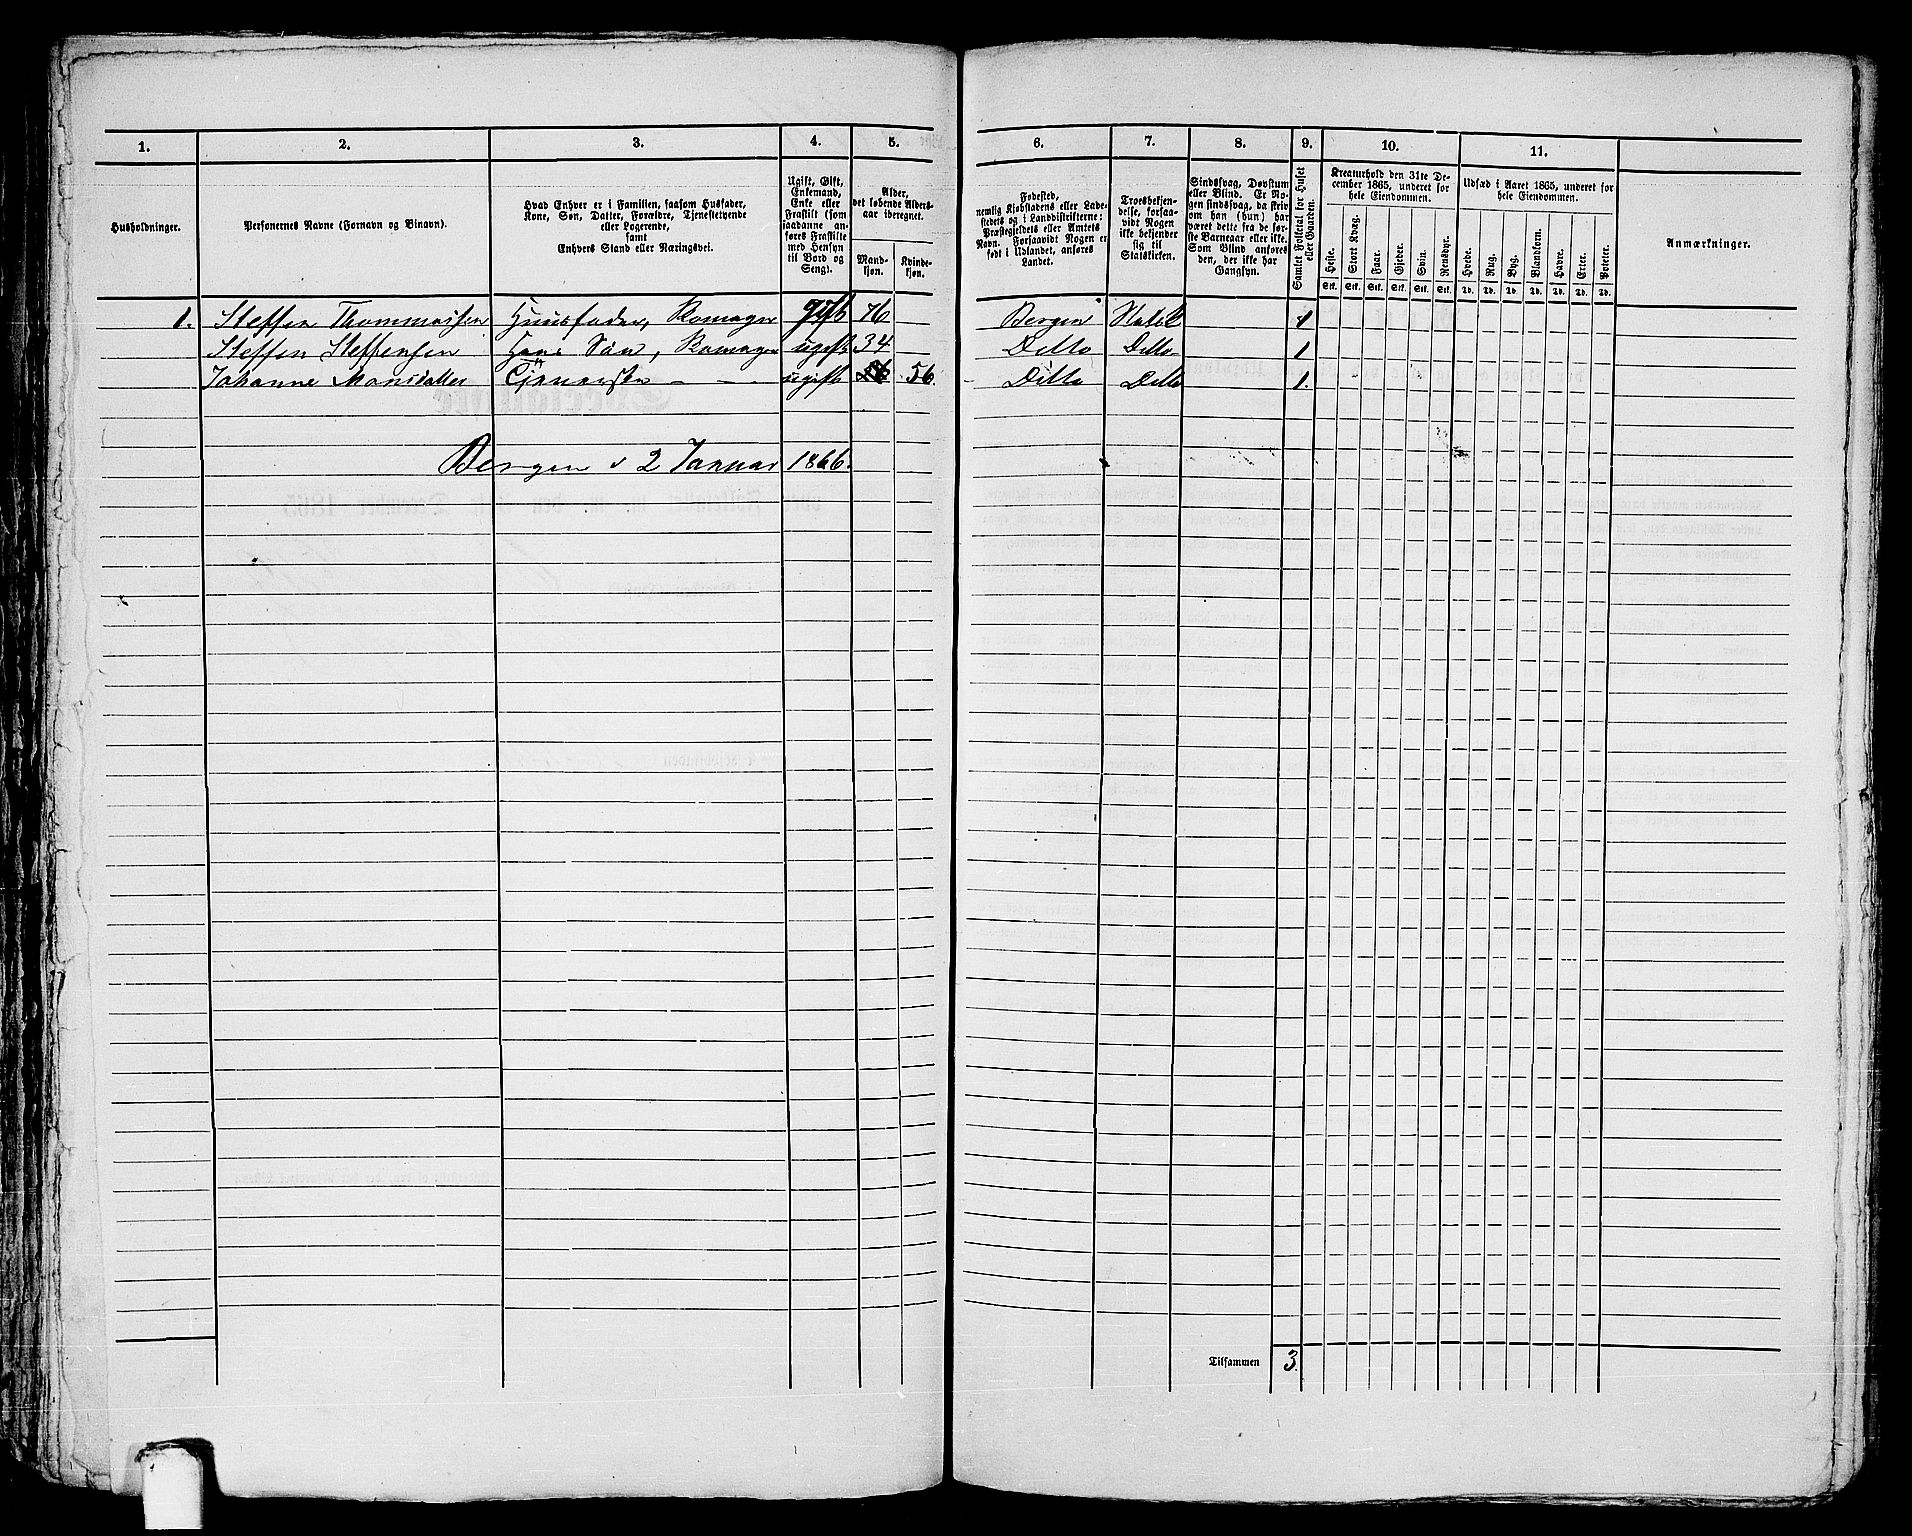 1. 2. 3. 4. 5. 6. 7. 8. 9. 10. 11.
Husholdninger.
Personernes Navne (Fornavn og Binavn).
Hvad Enhver er i Familien, saasom Husfader,
Kone, Søn, Datter, Forældre, Tjenestetyende
eller Logerende,
samt
Enhvers Stand eller Næringsvei.
Ugift, Gift,
Enkemand,
Enke eller
Fraskilt (som
saadanne an-
føres Fraskilte
med Hensyn
til Bord og
Seng).
Alder,
det løbende Alders-
aar iberegnet.
Mand-
kjøn.
Kvinde-
kjøn.
Fødested,
nemlig Kjøbstadens eller Lade-
stedets og i Landdistrikterne:
Præstegjeldets eller Amtets
Navn. Forsaavidt Nogen er
født i Udlandet, anføres
Landet.
Troesbekjen-
delse, forsaa-
vidt Nogen
ikke bekjender
sig til
Statskirken.
Sindssvag, Døvstum
eller Blind. Er No-
gen sindssvag, da skriv
om han (hun) har
været dette fra de før-
ste Barneaar eller ikke.
Som Blind anføres
den, der ikke har
Gangsyn.
Samlet Folketal for Huset
eller Gaarden.
Kreaturhold den 31te De-
cember 1865, underet for
hele Eiendommen.
Heste. Stort Kvæg. Faar. Gjeder. Svin. Rensdyr.
Stk. Stk. Stk. Stk. Stk. Stk.
Udsæd i Aaret 1865, underet for
hele Eiendommen.
Hvede. Rug. Byg. Blandkorn. Havre. Erter. Poteter.
Td. Td. Td. Td. Td. Td. Td.
Anmærkninger.
1. Steffen Thommassen Huusfader, Komager gift 76 Bergen Statsk 1
Steffen Steffensen Hans Søn, Komager ugift 34 Ditto Ditto 1
Johanne Monsdatter ugift 56 Ditto Ditto 1.
Bergen d 2 Januar 1866.
Tilsammen 3.